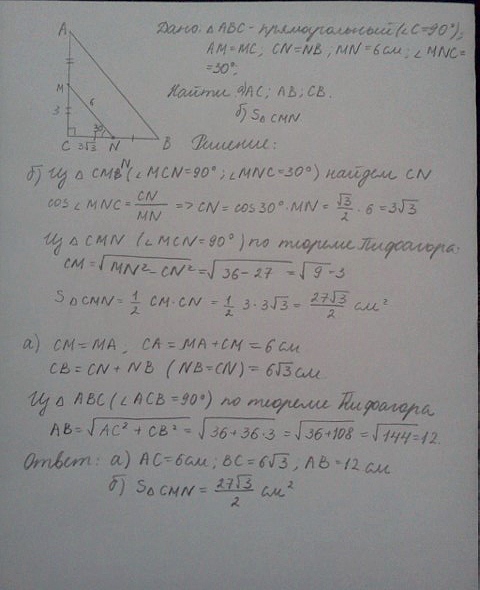 A
M
6
3
30°
C 3√3 N B
Дано: △ABC - прямоугольный (∠C=90°);
AM=MC, CN=NB, MN=6см; ∠MNC=
=30°;
Найти а) AC; AB; CB.
б) S△CMN.
Решение:
б) Из △CMN (∠MCN=90°; ∠MNC=30°) найдем CN
cos∠MNC = CN/MN => CN = cos30°·MN = √3/2 · 6 = 3√3
Из △CMN (∠MCN=90°) по теореме Пифагора.
CM = √(MN²-CN²) = √(36-27) = √9 = 3
S△CMN = 1/2 CM·CN = 1/2 3·3√3 = 27√3/2 см²
а) CM=MA, CA=MA+CM=6см
CB=CN+NB (NB=CN)=6√3см
Из △ABC (∠ACB=90°) по теореме Пифагора
AB = √(AC²+CB²) = √(36+36·3) = √(36+108) = √144 = 12.
Ответ: а) AC=6см; BC=6√3, AB=12 см
б) S△CMN = 27√3/2 см²